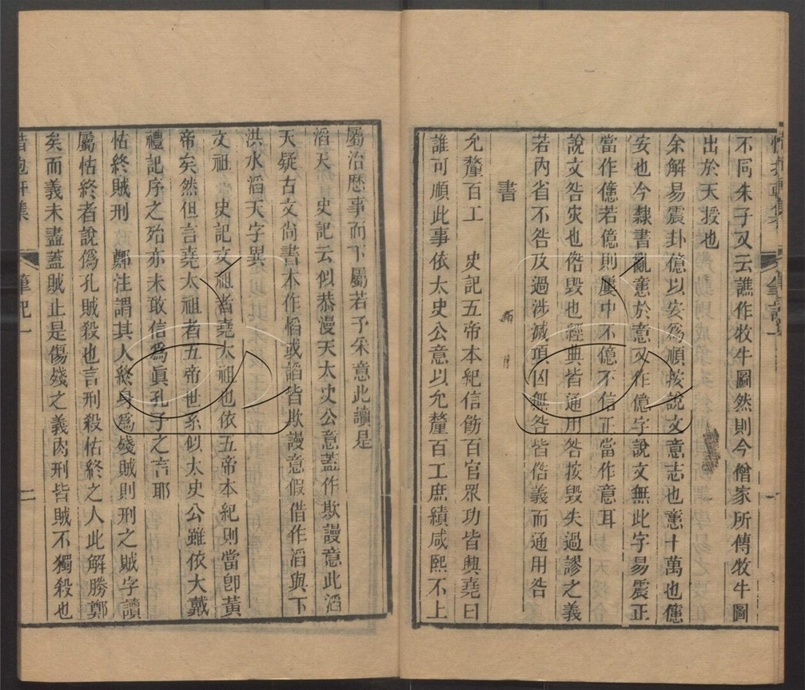 不同朱子又云譙作牧牛圖然則今僧家所傳牧牛圖
出於天授也
余解易震卦億以安為順按說文意志也䔬十萬也億
安也今隸書亂䔬於意又作億字說文無此字易震正
當作億若億則屢中不億不信正當作意耳
說文咎灾也俗毀也經典皆通用咎按毀失過謬之義
若內省不咎及過涉滅頂凶無咎皆俗義而通用咎
書
允釐百工 史記五帝本紀信飭百官眾功皆興堯曰
誰可順此事依太史公意以允釐百工庶績咸熙不上
屬治歷事而下屬若予采意此讀是
滔天 史記云似恭漫天太史公意蓋作欺謾意此滔
天疑古文尚書本作慆或謟皆欺謾意假借作滔與下
洪水滔天字異
文祖 史記文祖者堯太祖也依五帝本紀則當卽黃
帝矣然但言堯太祖者五帝世系似太史公雖依大戴
禮記序之殆亦未敢信為眞孔子之言耶
怙終賊刑 鄭注謂其人終身為殘賊則刑之賊字讀
屬怙終者說偽孔賊殺也言刑殺怙終之人此解勝鄭
矣而義未盡蓋賊止是傷殘之義肉刑皆賊不獨殺也
惜抱軒集 筆記一 二